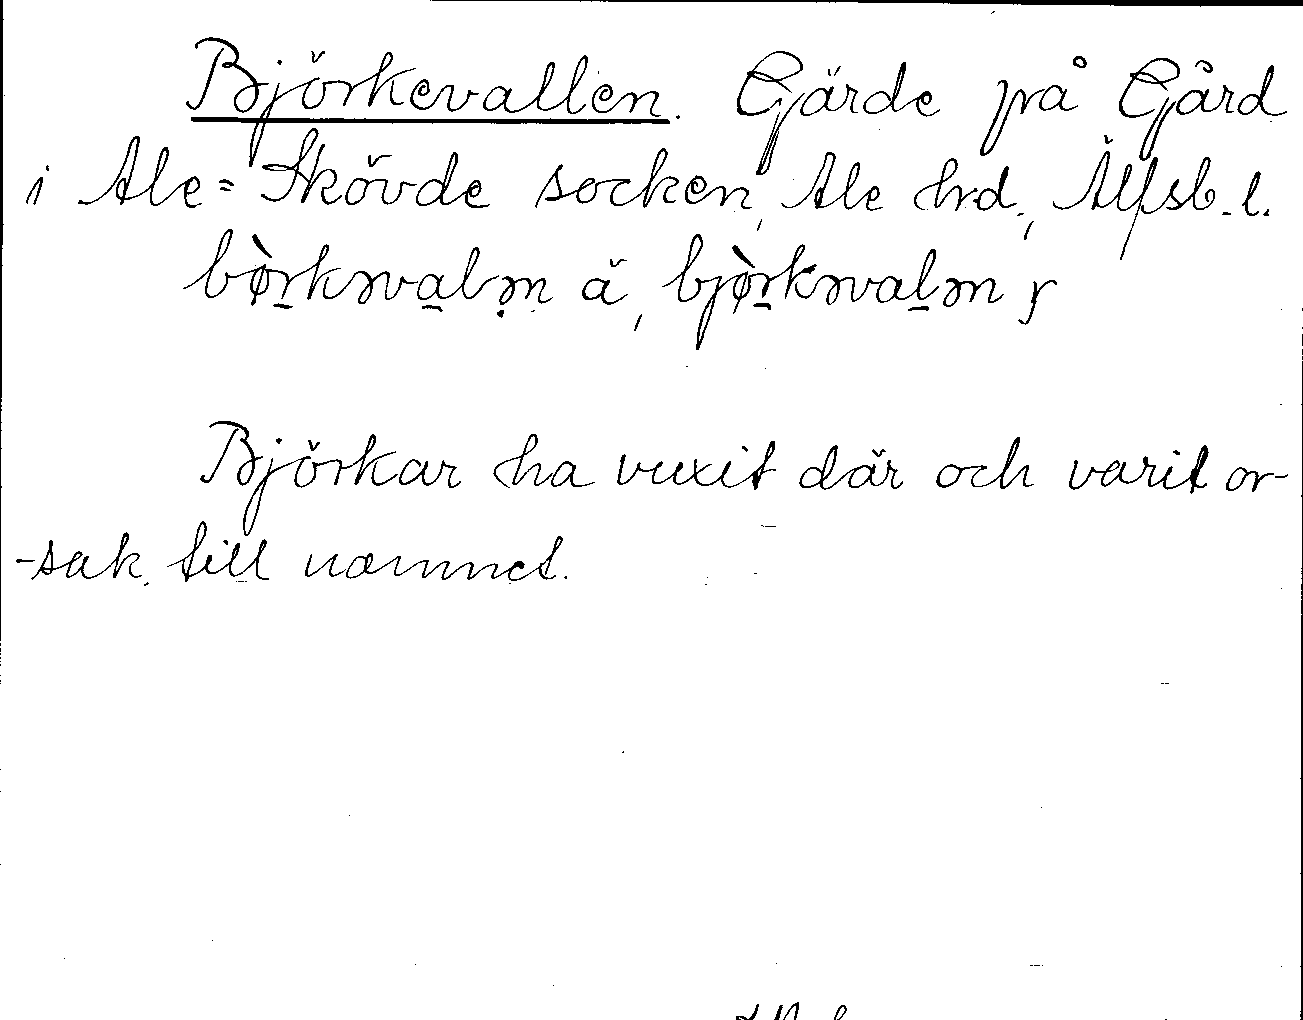 Björkevallen. Gärde på Gård
i Ale=Skövde socken, Ale hrd., Älfsb. l.
bø̀rkəvalən ä, bjø̀rkəvalən y
Björkar ha vuxit där och varit or-
-sak till namnet.